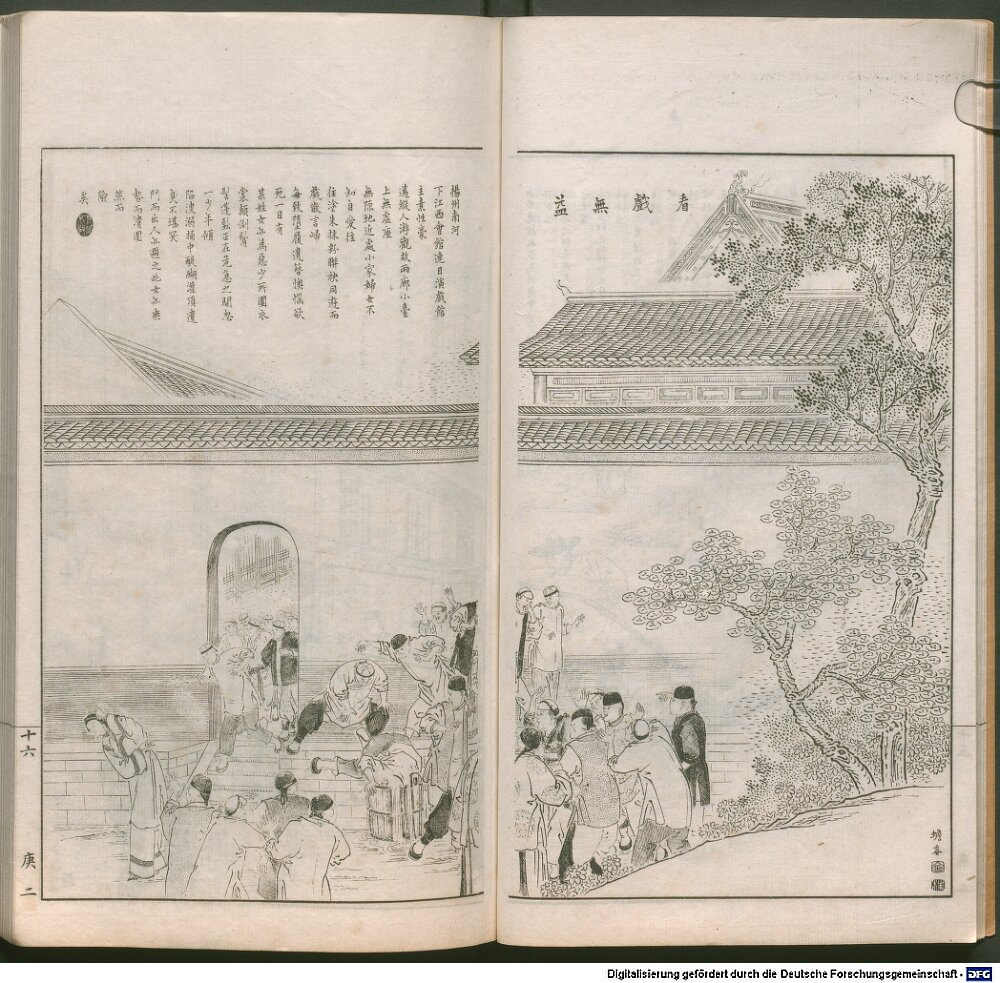 看戲無益
揚州南河
下江西會館連日演戲館
主素性豪
邁縱人游觀故兩廊小臺
上無虛座
無隙地近處小家婦女不
知自愛往
往塗朱抹粉聯袂同遊而
戲散言歸
每致墮履遺簪懊惱欲
死一日有
某姓女亦為惡少所圍衣
裳顛倒鬢
髻蓬鬆正在危急之間忽
一少年傾
陷溲溺桶中醍醐灌頂遺
臭不堪笑
門而出人亦避之此女亦乘
勢而潰圍
然而
險
矣
蟾香
十六
庚二
Digitalisierung gefördert durch die Deutsche Forschungsgemeinschaft - DFG